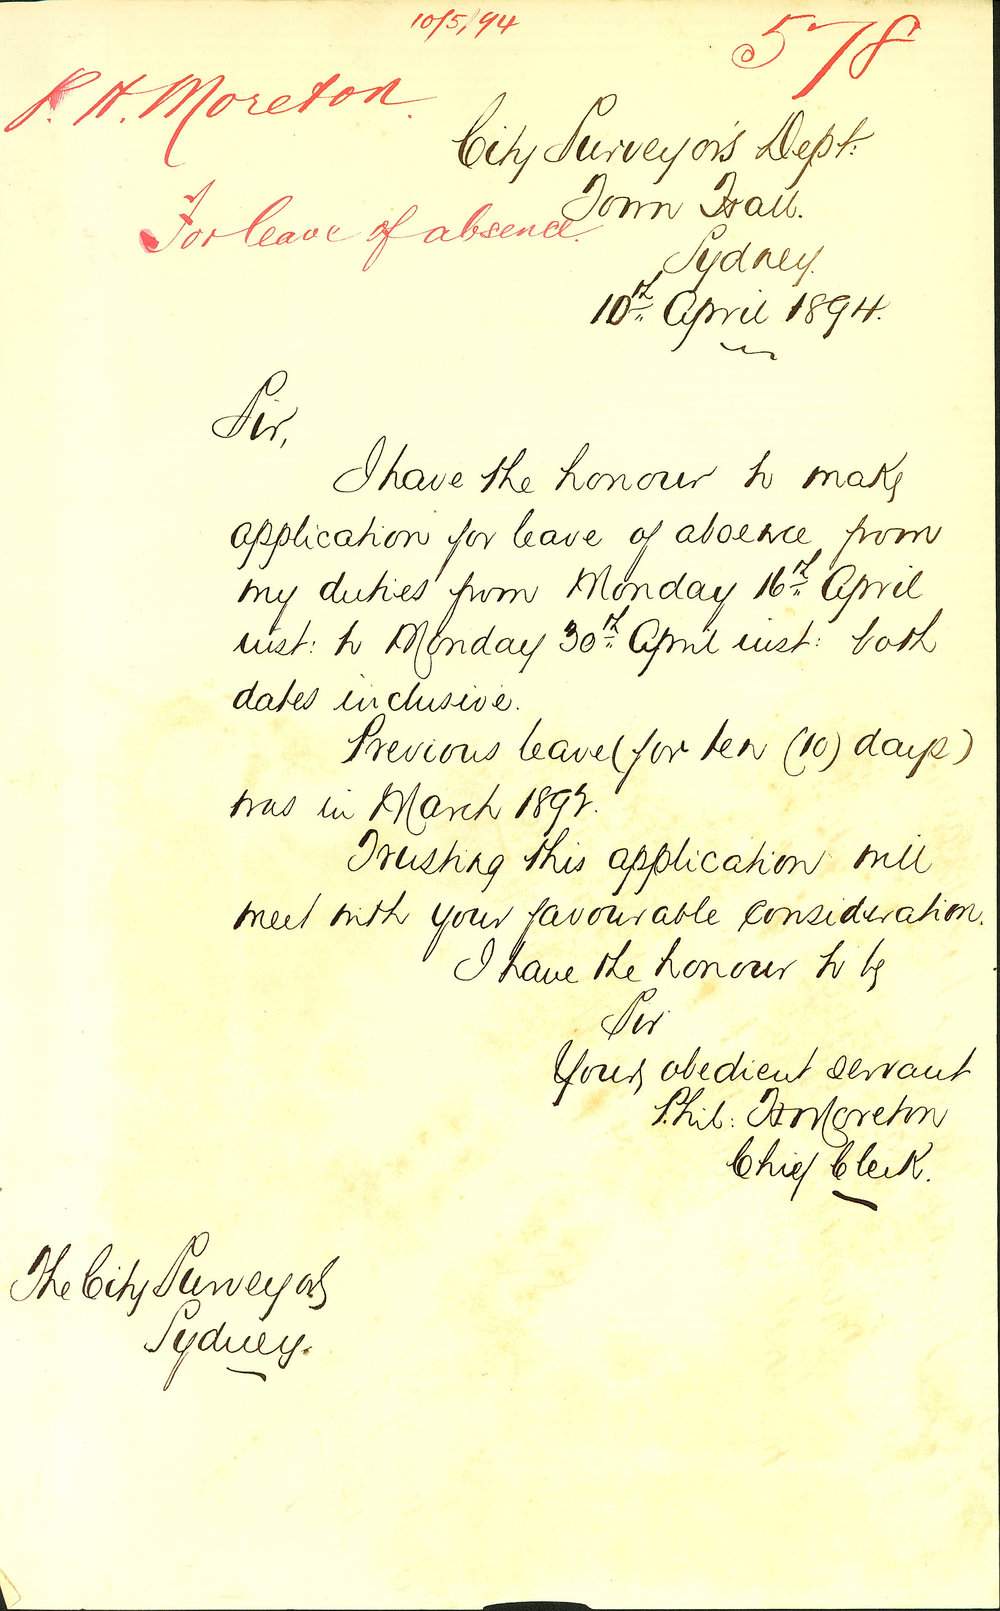 10/5/94
578
P. H. Moreton.
City Surveyor's Dept:
Town Hall.
For leave of absence.
Sydney.
10th April 1894.
Sir,
I have the honour to make
application for leave of absence from
my duties from Monday 16th April
inst: to Monday 30th April inst: both
dates inclusive.
Previous leave (for ten (10) days)
was in March
Trusting this application will
meet with your favourable consideration.
I have the honour to be
Sir
Your obedient servant
Phil: H Moreton
Chief Clerk.
The City Surveyor
Sydney.